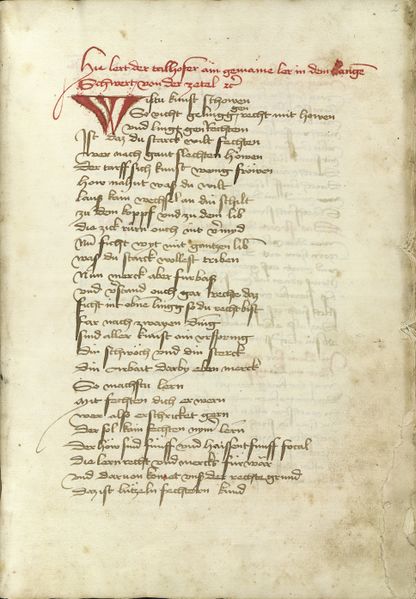 Hie lert der talhofer ain gemaine ler in dem langen
Schwert von der zetel etc
Wiltu kunst schowen
So sicht gelingg gen recht mit howen
vnd lingt gen Rechtem
Ist das du starck wilt fechten
wer nach gaut slechten höwen
Der tarff sich kunst weng fröwen
how nahnt was du wilt
laus kain wechsel an din schilt
zu dem koppf vnd zu dem lib
die zick rürn ouch nit vermyd
Nu ficht wyt mit gantzen lib
was du starck wollest triben
Nun merck aber fürbas
vnd verstand ouch gar rechte das
ficht nit oben lingg so du recht bist
far nach zwayen ding
sind aller kunst ain vrspring
Din schwöch vnd din sterck
Din arbait darby eben merck
So machstu lern
mit fechten dich erwern
wer also erschricket gern
Der sol kain fechten nymer lern
Der höw sind fünff vnd haissent fünff
Die lern recht vnd mercks für wăr
vnd daruon kompt vns der rechte grund
das ist lützeln fechtern kund